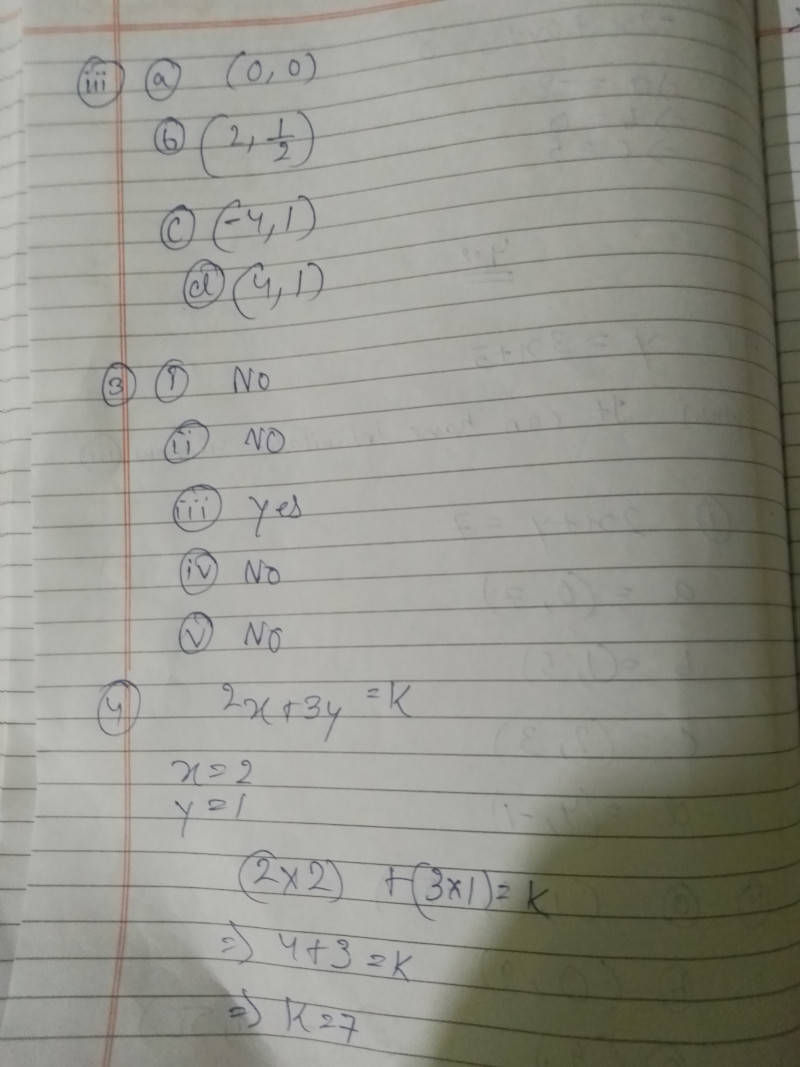 iii a (0, 0)
b (2, 1/2)
c (-4, 1)
d (4, 1)
3 i No
ii NO
iii Yes
iv No
v No
4 2x+3y =K
x=2
y=1
(2×2) +(3×1)=K
=> 4+3=K
=> K=7